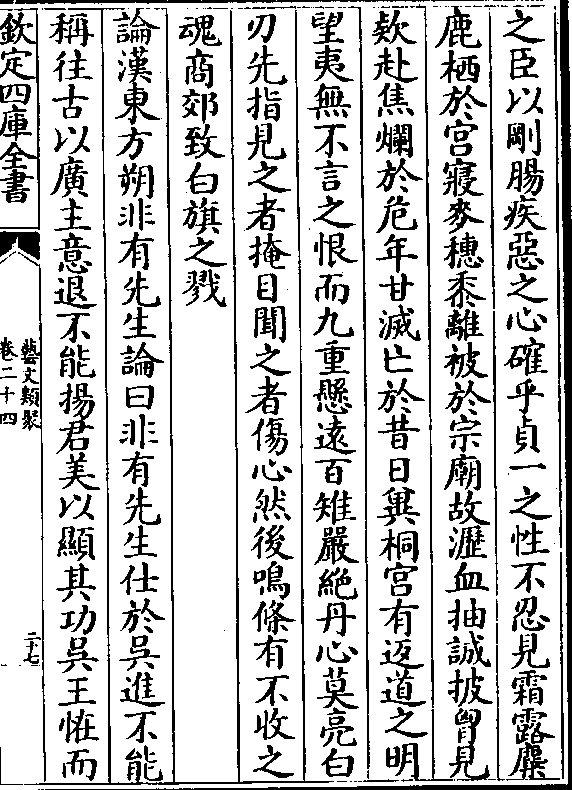 之臣以剛腸疾惡之心確乎貞一之性不忍見霜露麋
鹿栖於宫寢麥穗黍離被於宗廟故瀝血抽誠披胷見
款赴焦爛於危年甘滅亡於昔日兾桐宮有返道之明
望夷無不言之恨而九重懸遠百雉嚴絶丹心莫亮白
刃先指見之者掩目聞之者傷心然後鳴條有不收之
魂商郊致白旗之戮
論漢東方朔非有先生論曰非有先生仕於吳進不能
稱往古以廣主意退不能揚君美以顯其功吳王怪而
欽定四庫全書
藝文類聚
卷二十四
二十七